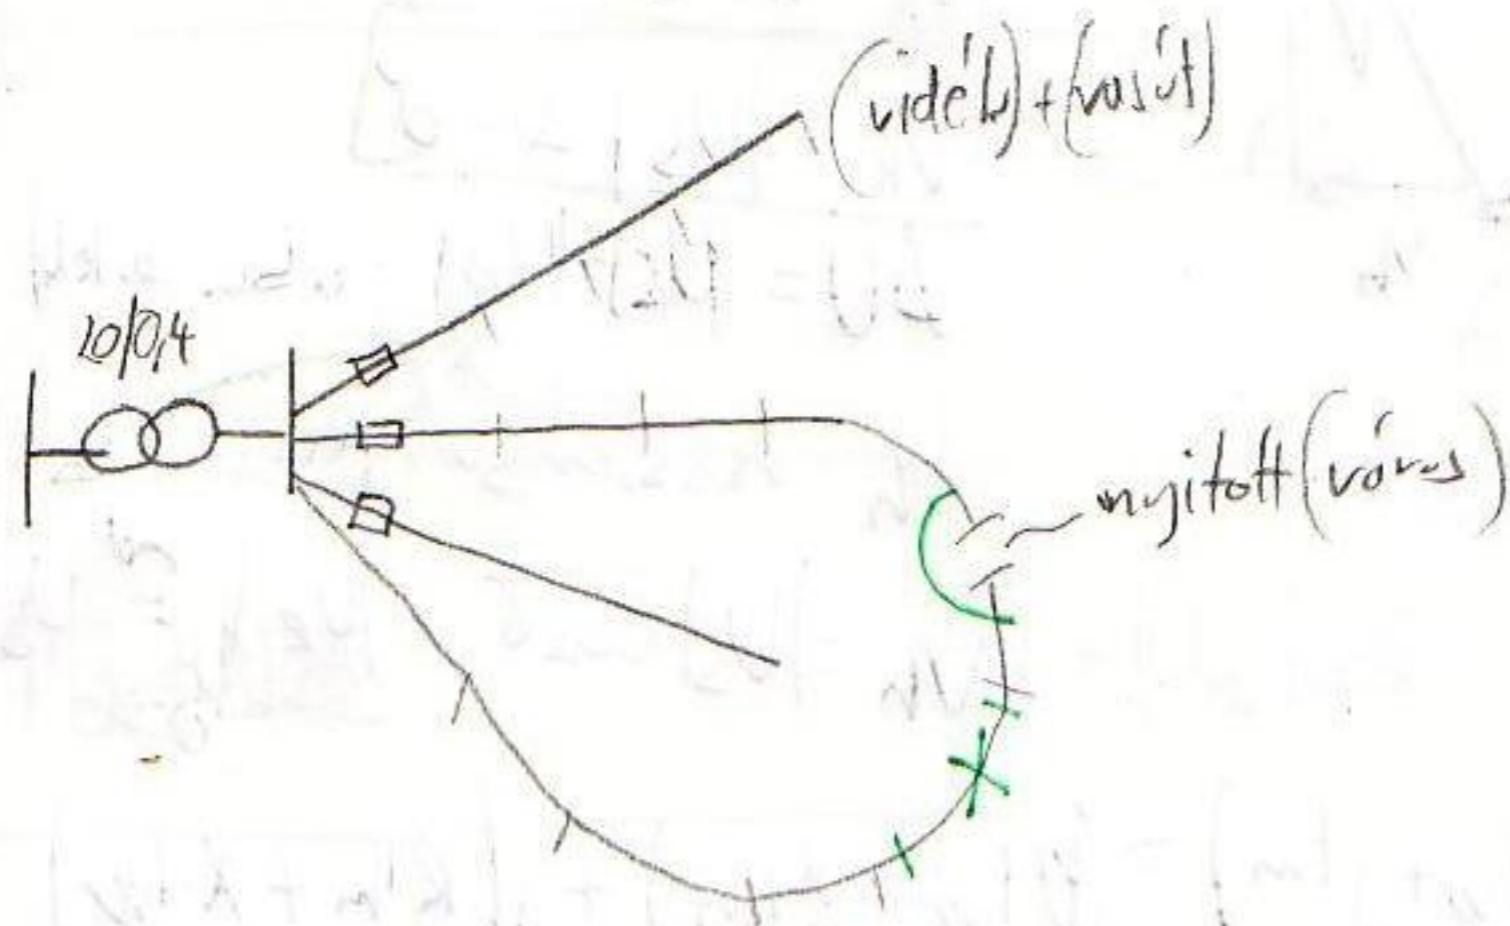 (vidék)+(vasút)
20/0,4
nyitott (város)